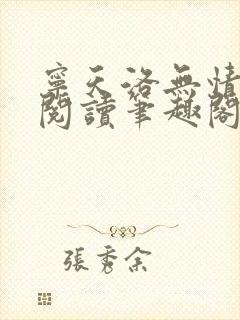 寧天洛無情
閱讀筆趣閣
張秀余